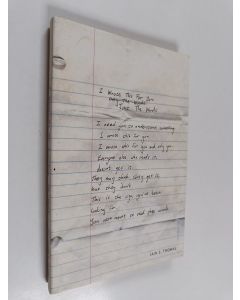 I Wrote This For You
Just The Words
I need you to understand something.
I wrote this for you.
I wrote this for you and only you.
Everyone else who reads it,
doesn't get it.
They may think they get it,
but they don't.
This is the sign you've been
looking for.
You were meant to read these words.
IAIN S. THOMAS